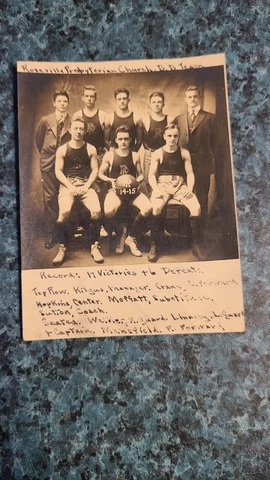 Roseville Presbyterian Church B.B. Team
R
14-15
Record: 17 Victories & 6 Defeats.
Top Row. Kilgus, Manager, Crane, Forward
Hopkins, Center. Moffatt, Substitute,
Sutton, Coach.
Seated, Weimer, R. guard Linney, L. guard
& Captain, F. Forward